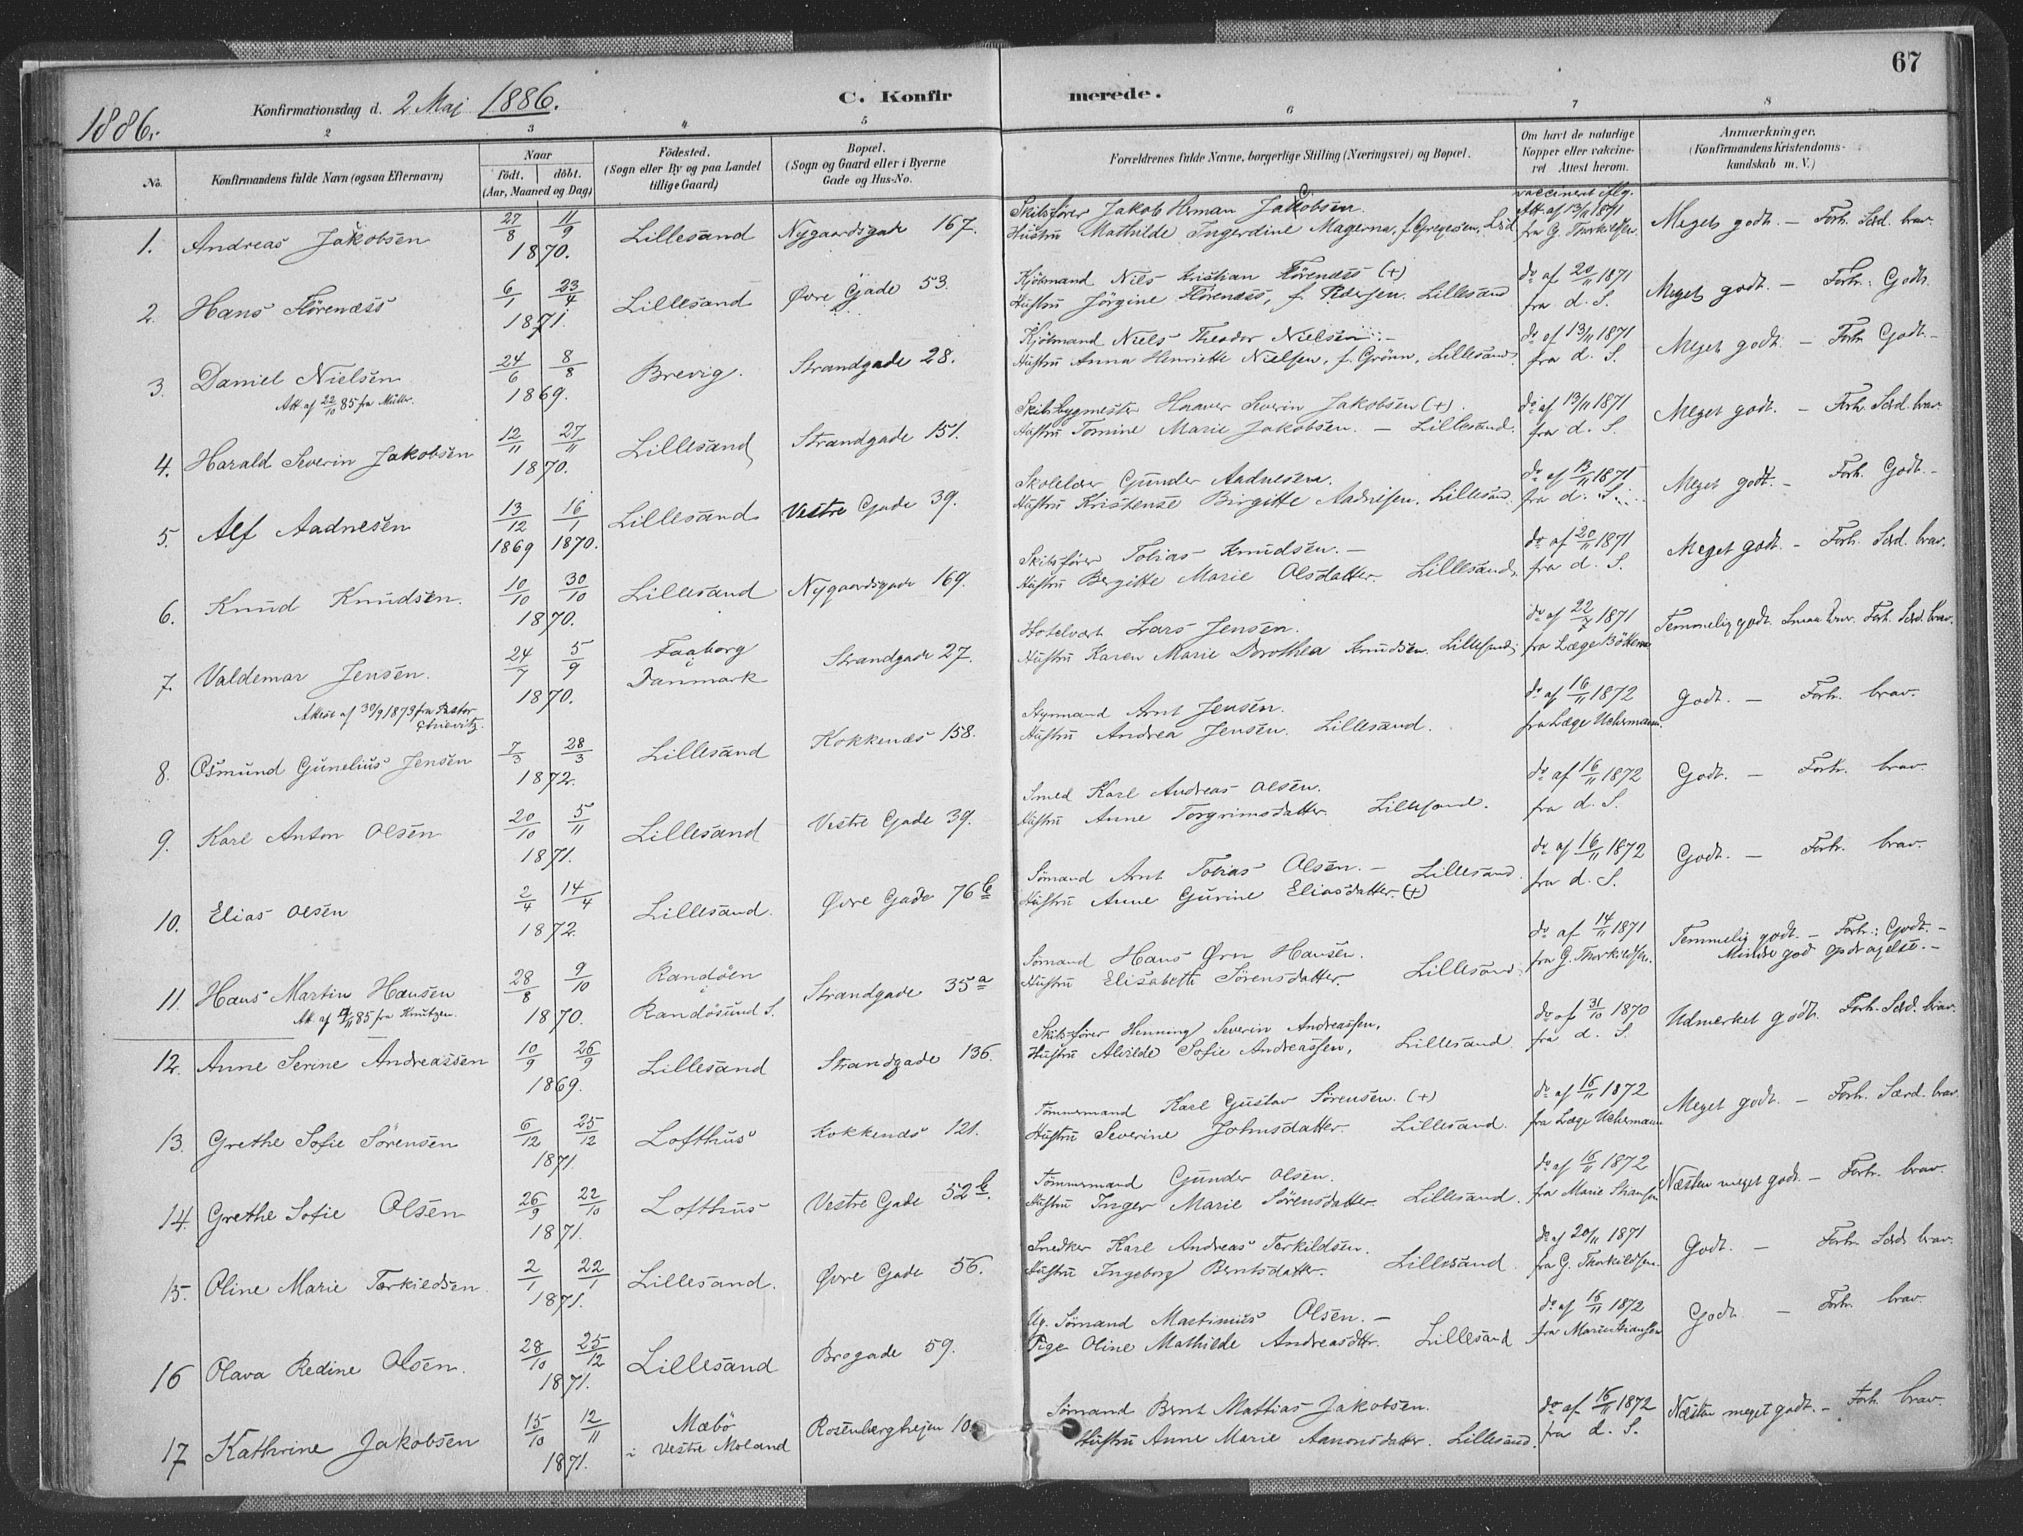 67
1886.
Konfirmationsdag d. 2 Maj 1886.
C. Konfirmerede.
2 3 4 5 6 7 8
No.
Konfirmandens fulde Navn (ogsaa Efternavn)
Naar
födt. döbt.
(Aar, Maaned og Dag)
Födested.
(Sogn eller By og paa Landet
tillige Gaard)
Bopæl.
(Sogn og Gaard eller i Byerne
Gade og Hus-No.
Forældrenes fulde Navne, borgerlige Stilling (Næringsvei) og Bopæl.
Om havt de naturlige
Kopper eller vakcine-
ret Attest herom.
Anmærkninger.
(Konfirmandens Kristendoms-
kundskab m. V.)
1. Andreas Jakobsen 27/8 11/9 1870. Lillesand Nygaardsgade 167.
Skibsfører Jakob Herman Jakobsen.
Hustru Mathilde Ingerdine Magerna, f. Gregesen, L.sd.
vaccineret Alg. Att. af 13/11 1871 fra G. Thorkildsen.
Meget godt. — Forh. Særd. brav.
2. Hans Florenæss 6/1 23/4 1871. Lillesand Øvre Gade 53.
Kjöbmand Niels Kristian Florenæss (+)
Hustru Jörgine Florenæss, f. Pedersen. Lillesand
do af 20/11 1871 fra d. S.
Meget godt. — Forh.: Godt.
3. Daniel Nielsen 24/6 8/8 1869. Brevig. Strandgade 28.
Att. af 22/10 85 fra Müller.
Kjöbmand Niels Theodor Nielsen. —
Hustru Anna Henriette Nielsen, f. Grönn, Lillesand
do af 13/11 1871 fra d. S.
Meget godt. — Forh. Godt. —
4. Harald Severin Jakobsen 12/11 27/11 1870. Lillesand Strandgade 151.
Skibsbygmester Haaver Severin Jakobsen (+)
Hustru Tomine Marie Jakobsen. — Lillesand.
do af 13/11 1871 fra d. S.
Meget godt. — Forh. Særd. brav.
5. Alf Aadnesen 13/12 1869 16/1 1870. Lillesand Vestre Gade 39.
Skolelær Gunder Aadnesen.
Hustru Kristense Birgitte Aadnesen. Lillesand.
do af 13/11 1871 fra d. S.
Meget godt. — Forh. Godt. —
6. Knud Knudsen. 10/10 30/10 1870. Lillesand Nygaardsgade 169.
Skibsfører Tobias Knudsen. —
Hustru Bergitte Marie Olsdatter. Lillesand.
do af 20/11 1871 fra d. S.
Meget godt. — Forh. Særd. brav.
7. Valdemar Jensen. 24/7 5/9 1870. Faaborg i Danmark Strandgade 27.
Attest af 30/9 1873 fra Pastor
Hotelvært Lars Jensen.
Hustru Karen Marie Dorothea Knudsen. Lillesand
do af 22/7 1871 fra Læge
Temmelig godt. Forh. Særd. brav.
8. Osmund Gunelius Jensen 7/3 28/3 1872. Lillesand Kokkenæs 158.
Styrmand Arnt Jensen.
Hustru Andrea Jensen. Lillesand.
do af 16/11 1872 fra Læge Uchermann.
Godt. — Forh. brav.
9. Karl Anton Olsen 20/10 5/11 1871. Lillesand Vestre Gade 39.
Smed Karl Andreas Olsen.
Hustru Anne Torgrimsdatter. Lillesand.
do af 16/11 1872 fra d. S.
Godt. — Forh. brav.
10. Elias Olsen 2/4 14/4 1872. Lillesand. Øvre Gade 76 b
Sömand Arnt Tobias Olsen. — Lillesand.
Hustru Anne Gurine Eliasdatter. (+)
do af 16/11 1872 fra d. S.
Godt. — Forh. brav.
11. Hans Martin Hansen 28/8 9/10 1870. Randøen i Randøsund S. Strandgade 35 a
Att. af 85 fra Knutzen.
Sömand Hans Ørn Hansen.
Hustru Elisabeth Sørensdatter. Lillesand.
do af 14/11 1871 fra G. Thorkildsen.
Temmelig godt. — Forh.: Godt. —
Mindre god opdragelse. —
12. Anne Serine Andreassen 10/9 26/9 1869. Lillesand Strandgade 136.
Skibsfører Henning Severin Andreassen,
Hustru Alvilde Sofie Andreassen, Lillesand
do af 31/10 1870 fra d. S.
Udmerket godt. Forh. Særd. brav.
13. Grethe Sofie Sörensen 6/12 25/12 1871. Lofthus Kokkenæs 121.
Tömmermand Karl Gustav Sörensen. (+)
Hustru Severine Johnsdatter. Lillesand.
do af 16/11 1872 fra Læge Uchermann
Meget godt. — Forh. Særd. brav.
14. Grethe Sofie Olsen 26/9 22/10 1871. Lofthus Vestre Gade 52 b.
Tömmermand Gunder Olsen.
Hustru Inger Marie Sörensdatter. Lillesand.
do af 16/11 1872 fra Marie
Næsten meget godt. — Forh. brav.
15. Oline Marie Terkildsen 2/1 22/1 1871. Lillesand. Øvre Gade 56.
Snedker Karl Andreas Terkildsen.
Hustru Ingeborg Berntsdatter. Lillesand.
do af 20/11 1871 fra G. Thorkildsen.
Godt. — Forh. Særd. brav.
16 Olava Redine Olsen. 28/10 25/12 1871. Lillesand Brogade 59.
Ug. Sömand Martinius Olsen. —
Pige Oline Mathilde Andreasdtr. Lillesand
do af 16/11 1872 fra Marie
Godt. — Forh. brav.
17 Kathrine Jakobsen 15/10 12/11 1871. Mæbö i Vestre Moland
Sömand Bernt Mathias Jakobsen.
Hustru Anne Marie Aanonsdatter. Lillesand.
do af 16/11 1872 fra d. S.
Næsten meget godt. — Forh. brav.